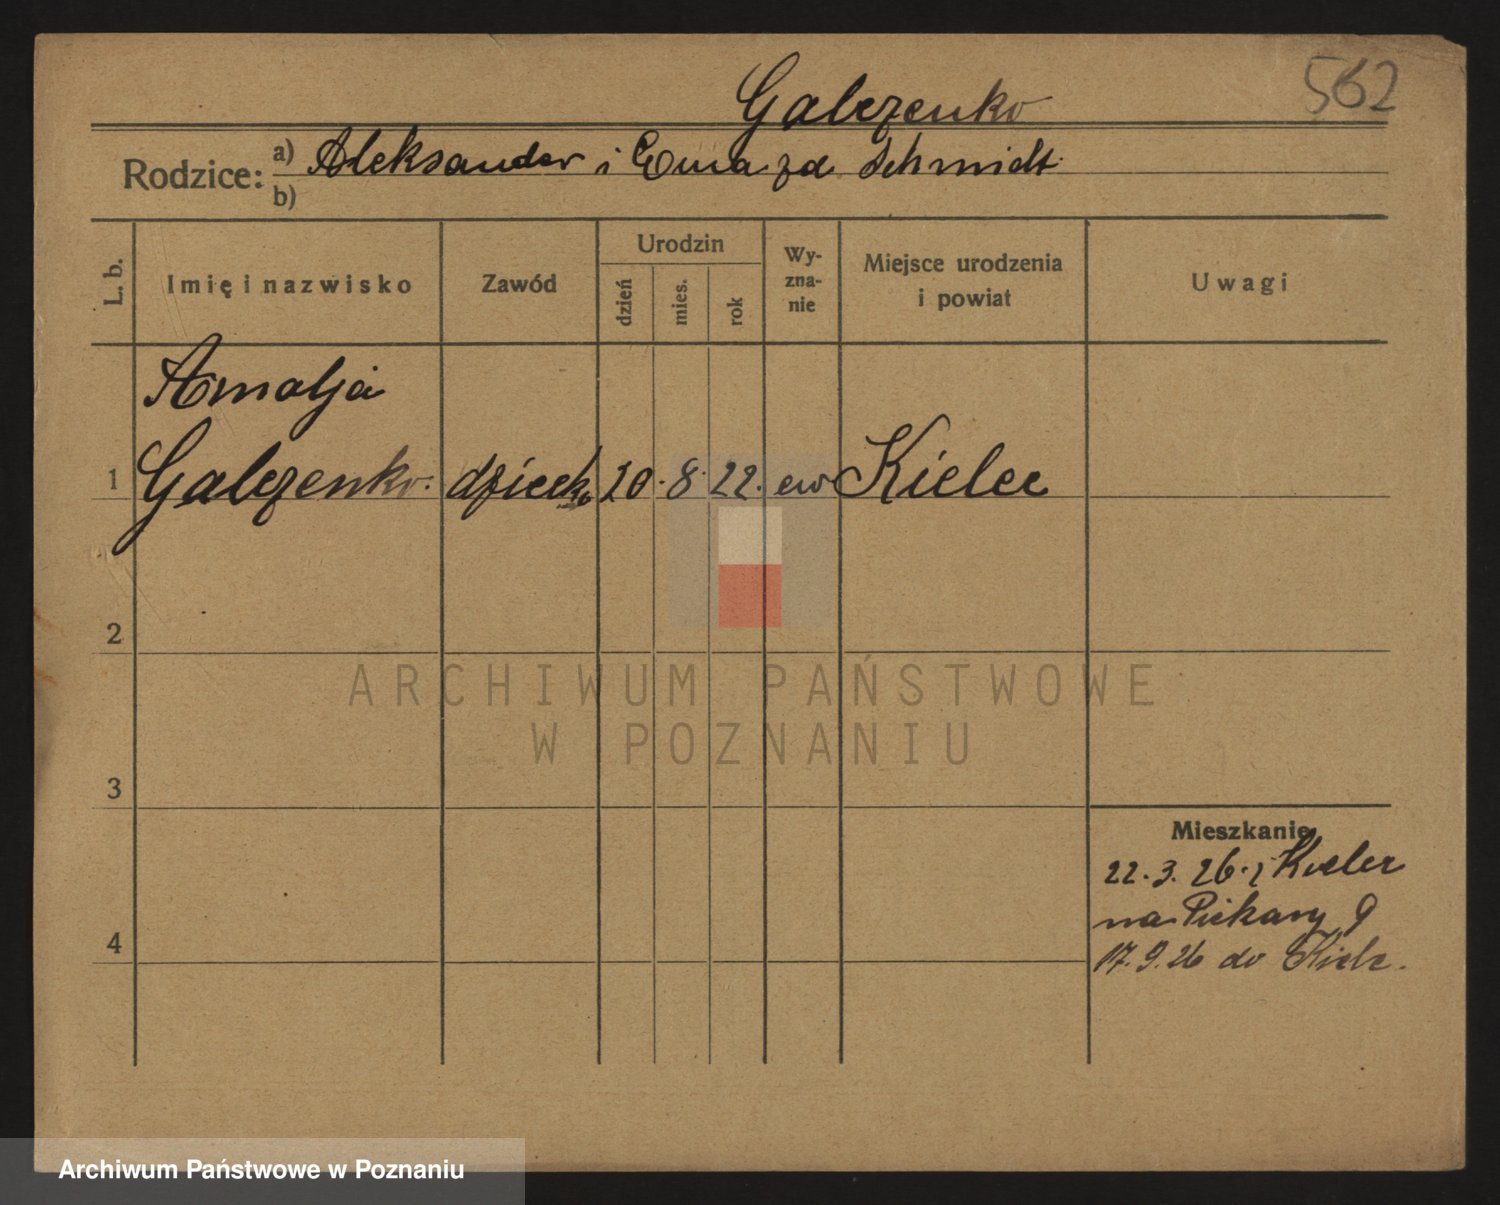 562
Galczenko
Rodzice: a) Aleksander i Ema zd Schmidt
b)
L. b. Imię i nazwisko Zawód Urodzin dzień mies. rok Wy-zna-nie Miejsce urodzenia i powiat Uwagi
Amalja
1 Galczenko. dziecko 20. 8. 22. ew Kielce
2
ARCHIWUM PAŃSTWOWE
W POZNANIU
3
Mieszkanie
22. 3. 26. z Kielce
na Piekary 9
4
17. 9. 26 do Kielc.
Archiwum Państwowe w Poznaniu